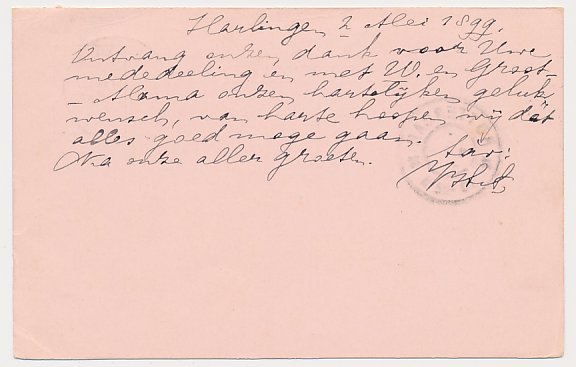 Harlingen 2 Mei 1899.
Ontvang onzen dank voor Uwe
mededeeling en met W. en Groot-
-Mama onzen hartelijken geluk
wensch, van harte hopen wij dat
alles goed moge gaan.
Na onze aller groeten.